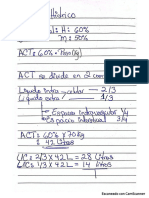 Hídrico
al: H: 60%
m: 50%
ACT: 60% · Peso (Kg)
ACT se divide en 2 com
Líquido intracelular 2/3
Líquido extra 1/3
Espacio Intravascular 1/4
Espacio Intersticial 3/4
ACT: 60% x 70 Kg
= 42 Litros
LIC = 2/3 x 42 L = 28 Litros
LEC = 1/3 x 42 L = 14 Litros
Escaneado con CamScanner